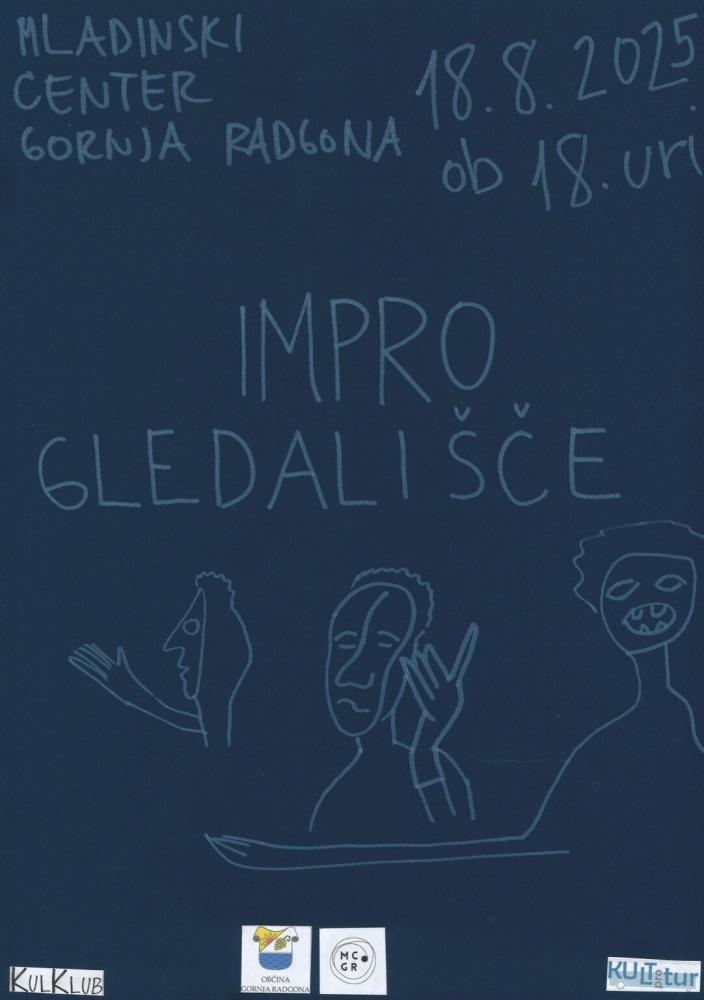 MLADINSKI
CENTER
GORNJA RADGONA
18.8.2025
ob 18. uri
IMPRO
GLEDALIŠČE
KULKLUB
OBČINA
GORNJA RADGONA
MC
GR
KULTpro
tur